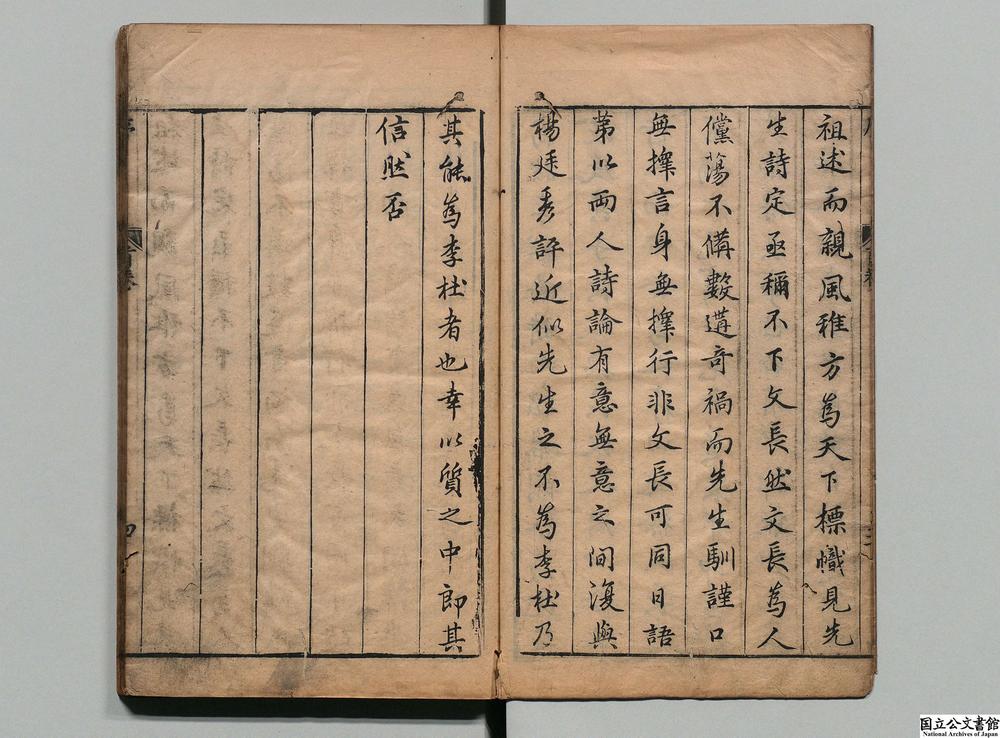 祖述而親風雅方為天下標幟見先
生詩定亟稱不下文長然文長為人
儻蕩不備數遘奇禍而先生馴謹口
無擇言身無擇行非文長可同日語
第以兩人詩論有意無意之間復與
楊廷秀評近似先生之不為李杜乃
其能為李杜者也幸以質之中郎其
信然否
国立公文書館
National Archives of Japan